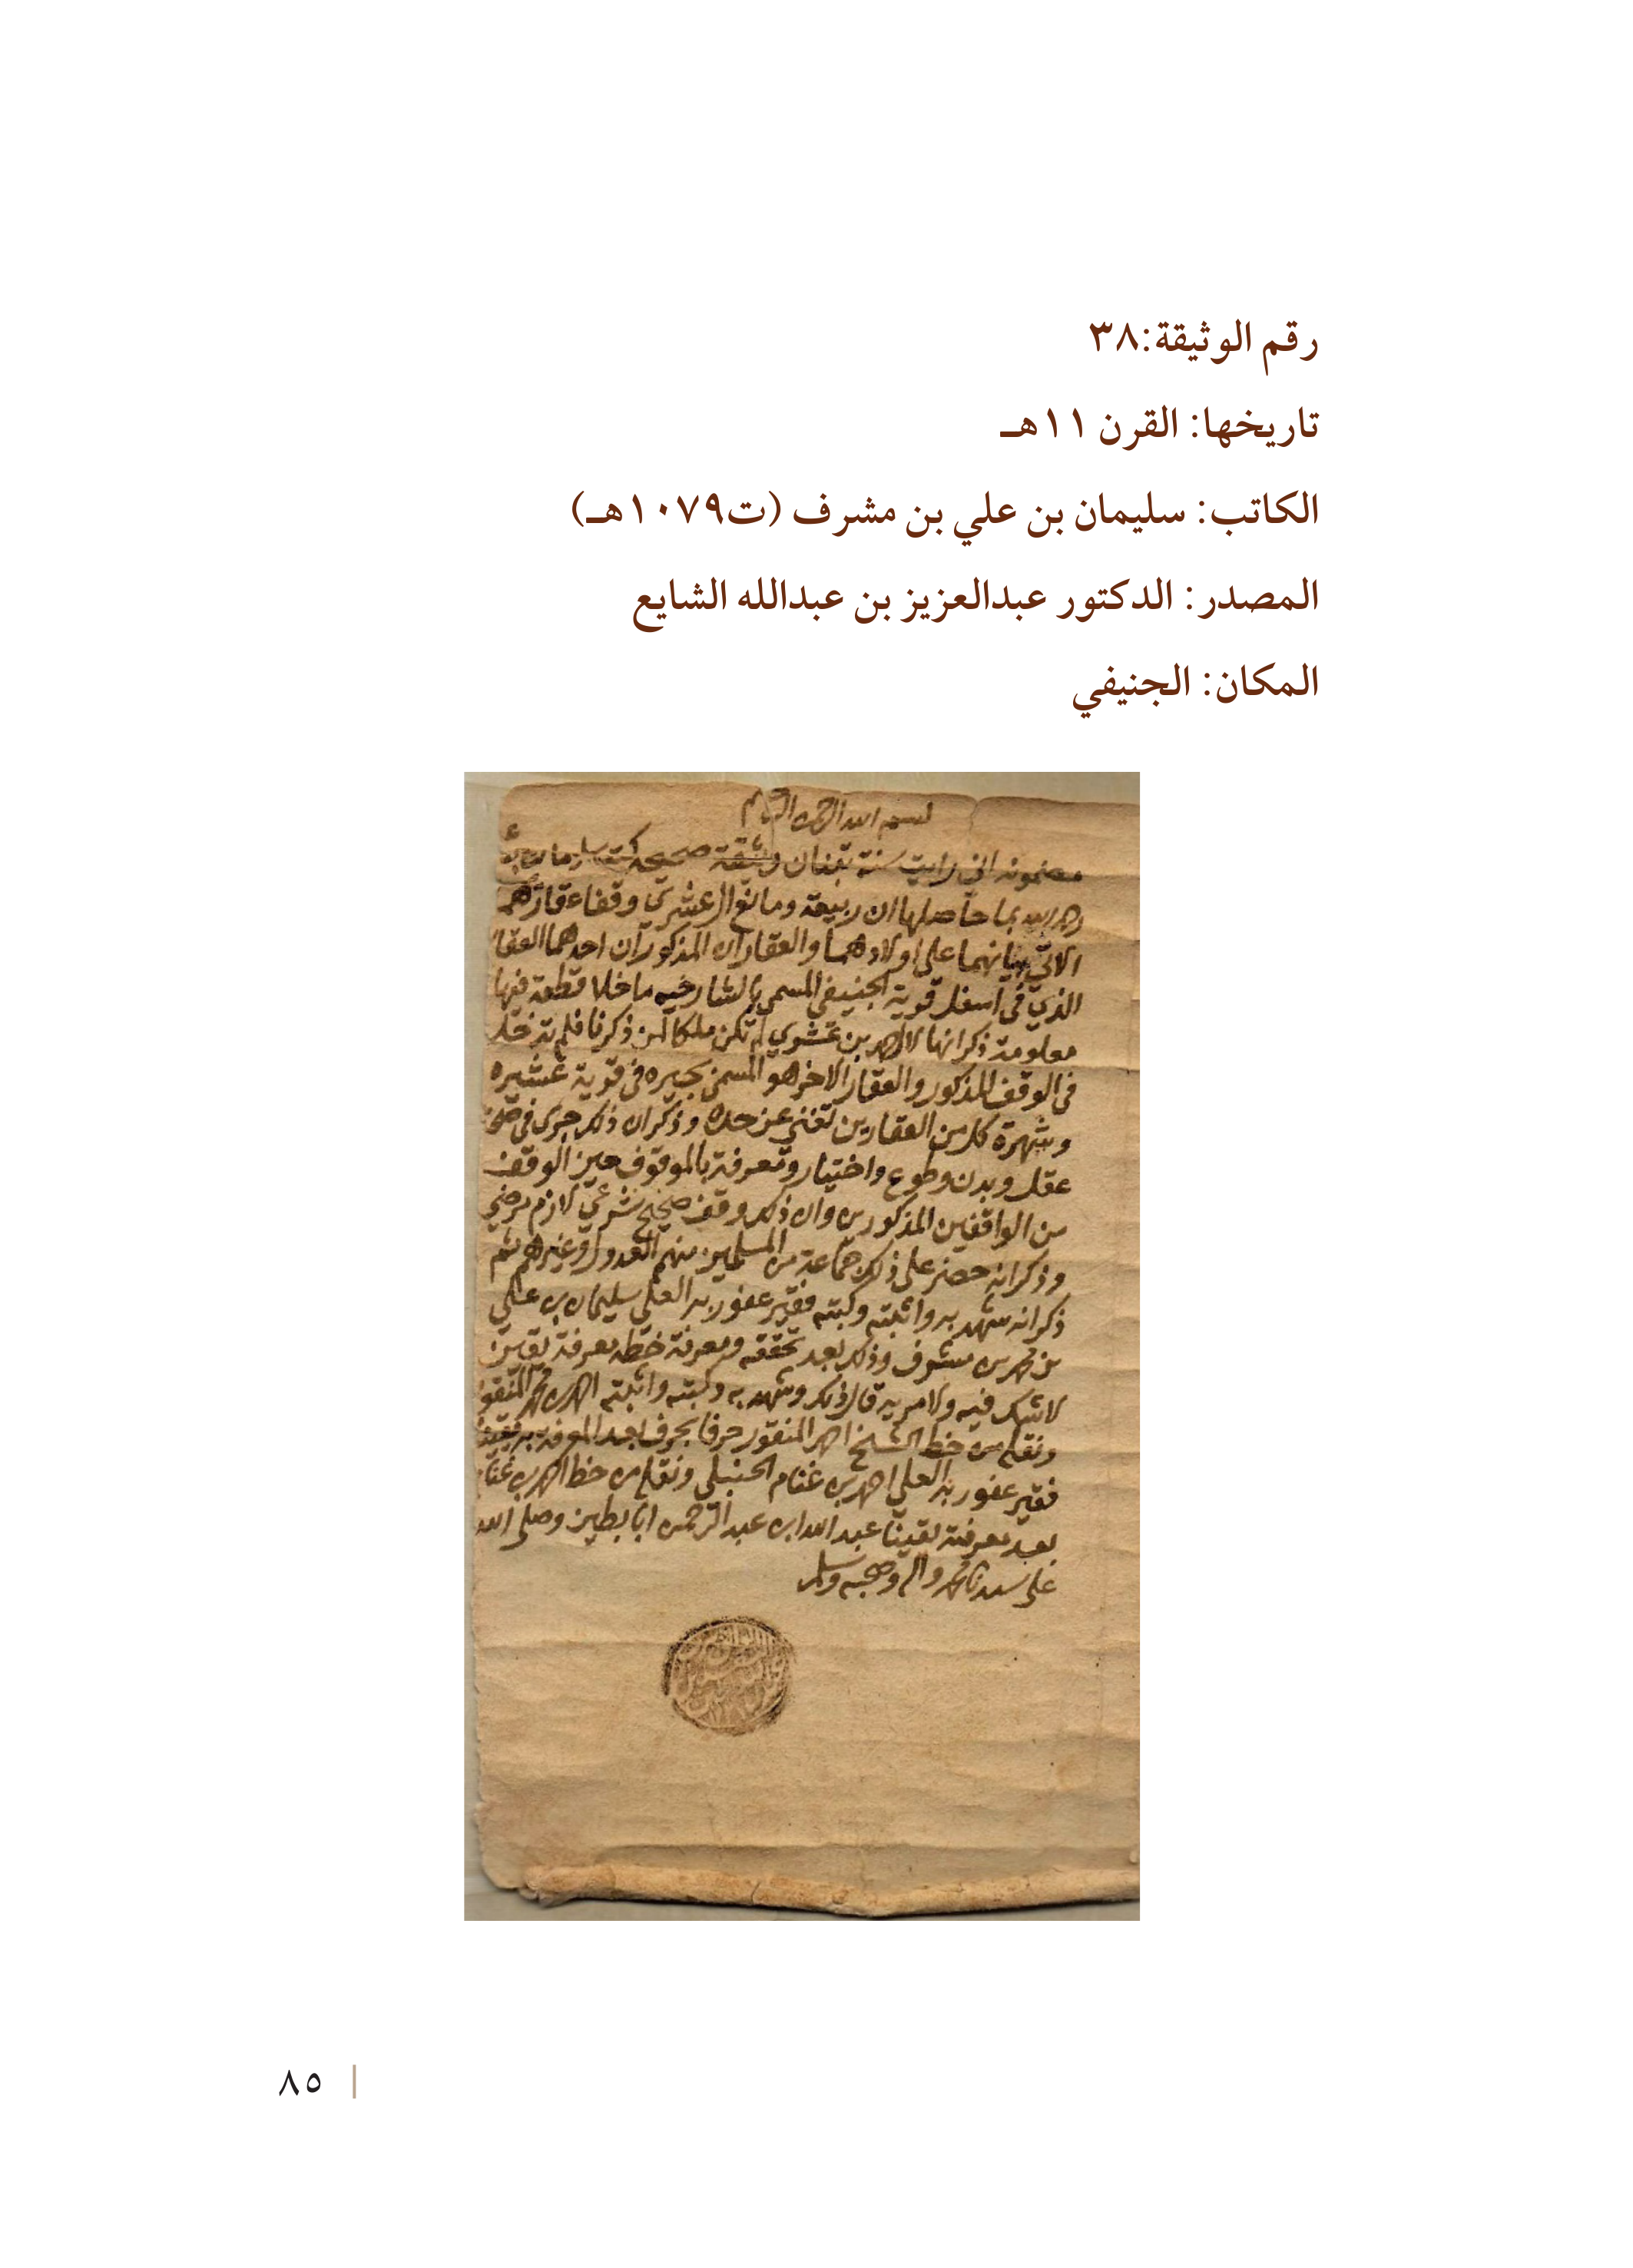 رقم الوثيقة:٣٨
تاريخها: القرن ١١هـ
الكاتب: سليمان بن علي بن مشرف (ت١٠٧٩هـ)
المصدر: الدكتور عبدالعزيز بن عبدالله الشايع
المكان: الجنيفي
بسم الله الرحمن الرحيم
مضمونه اني رايت وثيقة صحيحة كتبه سليمان بن علي
رحمه الله بما حاصلها ان ربيعة ومانع ال عشري وقفا عقارهما
الاتي بيانهما على اولادهما والعقاران المذكوران احدهما العقار
الذي في اسفل قرية الجنيفي المسمى بالشارخيه ما خلا قطعة فيها
معلومة ذكر انها لاحمد بن عشري لم تكن ملكا لمن ذكرنا فلم تدخل
في الوقف المذكور والعقار الاخر هو المسمى بحيره في قرية عشيره
وشهرة كل من العقارين تغني عن حده وذكر ان ذلك جرى في صحة
عقل وبدن وطوع واختيار ومعرفة بالموقوف حين الوقف
من الواقفين المذكورين وان ذلك وقف صحيح شرعي لازم مرضي
وذكر انه حضر على ذلك جماعة من المسلمين منهم العدول وغيرهم ثم
ذكر انه شهد به واثبته وكتبه فقير عفو ربه العلي سليمان بن علي
بن محمد بن مشرف وذلك بعد تحققه ومعرفة خطه معرفة يقين
لا شك فيه ولا مرية قال ذلك وشهد به وكتبه واثبته احمد بن محمد المنقور
ونقله من خط الشيخ احمد المنقور حرفا بحرف بعد المعرفة به يقينا
فقير عفو ربه العلي احمد بن غنام الحنبلي ونقله من خط احمد بن غنام
بعد معرفته يقينا عبد الله ابن عبد الرحمن ابا بطين وصلى الله
على سيدنا محمد واله وصحبه وسلم
٨٥